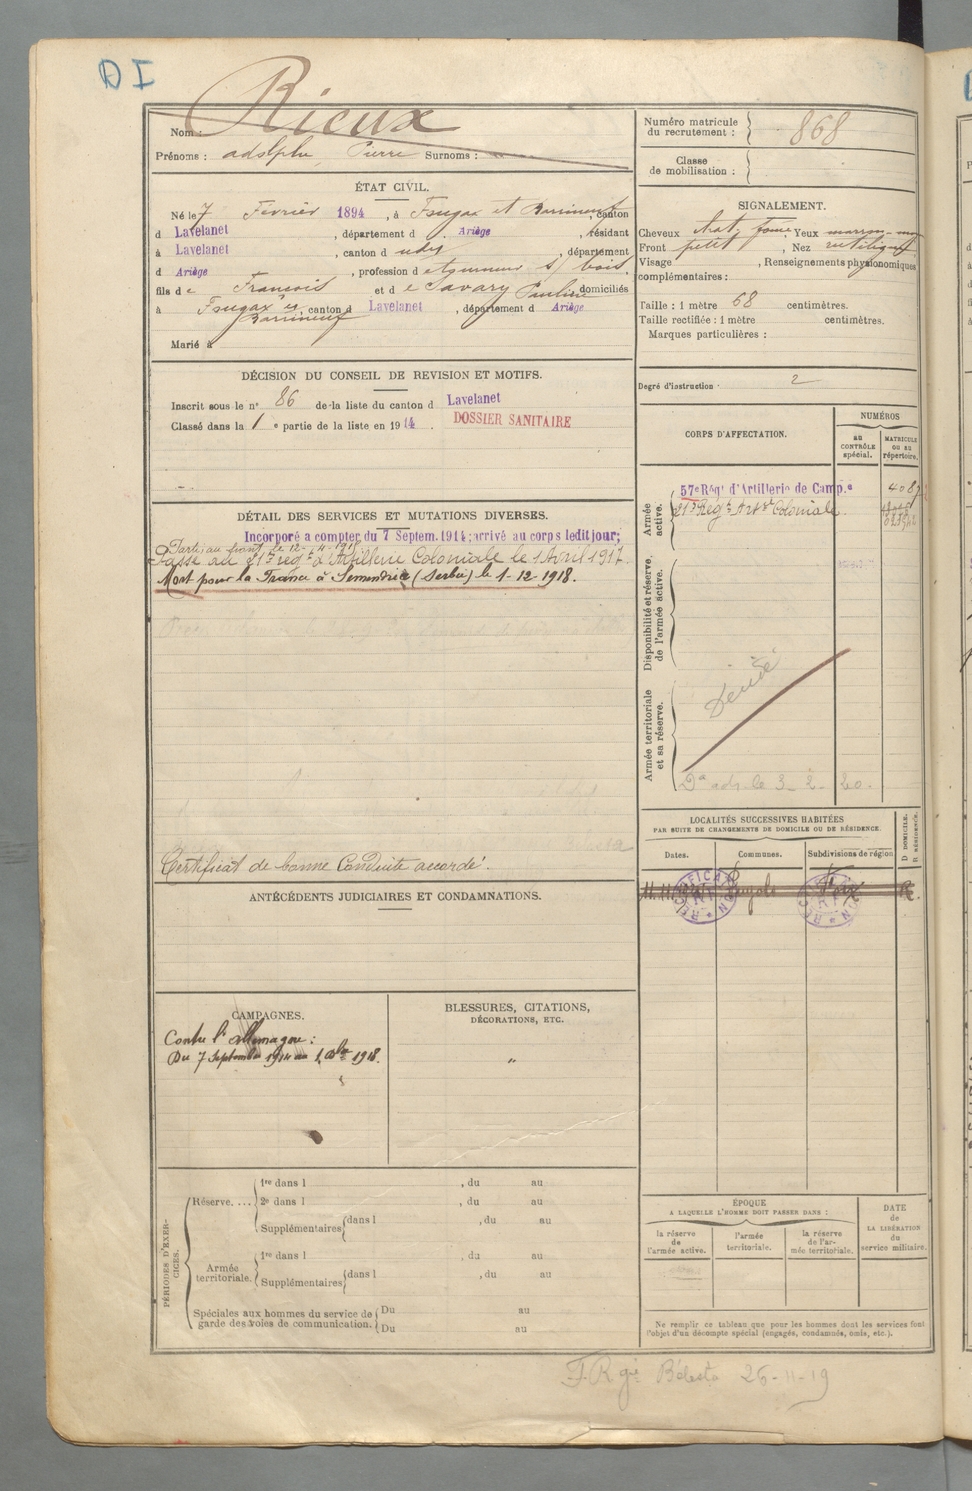 DI
Nom : Rieux
Prénoms : adolphe Pierre Surnoms :
Numéro matricule du recrutement : 868
Classe de mobilisation :
ÉTAT CIVIL.
Né le 7 Février 1894, à Fougax et Barrineuf, canton
d Lavelanet, département d Ariège, résidant
à Lavelanet, canton d udy, département
d Ariège, profession d s/ bois,
fils de François et de Savary Pauline domiciliés
à Fougax et Barrineuf, canton d Lavelanet, département d Ariège
Marié à
SIGNALEMENT.
Cheveux chat. foncé Yeux marron
Front petit, Nez rectiligne
Visage , Renseignements physionomiques
complémentaires :
Taille : 1 mètre 68 centimètres.
Taille rectifiée : 1 mètre centimètres.
Marques particulières :
Degré d'instruction : 2
DÉCISION DU CONSEIL DE REVISION ET MOTIFS.
Inscrit sous le n° 86 de la liste du canton d Lavelanet
Classé dans la 1e partie de la liste en 1914.
DOSSIER SANITAIRE
DÉTAIL DES SERVICES ET MUTATIONS DIVERSES.
Incorporé a compter du 7 Septem. 1914; arrivé au corps ledit jour;
Parti au front le 12-
Passé au 21e rég. d'Artillerie Coloniale le 1 Avril 1917.
Mort pour la France à Semendria (Serbie) le 1-12-1918.
Certificat de bonne Conduite accordé.
CORPS D'AFFECTATION.
NUMÉROS
au CONTRÔLE spécial.
MATRICULE OU AU répertoire.
Armée active.
57e Régt d'Artillerie de Campe
21e Régt Artie Coloniale
Disponibilité et réserve de l'armée active.
Armée territoriale et sa réserve.
Décédé
Da adr. le 3-2-20.
LOCALITÉS SUCCESSIVES HABITÉES
PAR SUITE DE CHANGEMENTS DE DOMICILE OU DE RÉSIDENCE.
Dates.
Communes.
Subdivisions de région
D DOMICILE. R RÉSIDENCE.
Foix
R.
ANTÉCÉDENTS JUDICIAIRES ET CONDAMNATIONS.
CAMPAGNES.
Contre l'Allemagne :
Du 7 Septembre 1914 au 1 Xbre 1918.
BLESSURES, CITATIONS,
DÉCORATIONS, ETC.
"
PÉRIODES D'EXERCICES.
Réserve....
1re dans l , du au
2e dans l , du au
Supplémentaires dans l , du au
au
Armée territoriale.
1re dans l , du au
Supplémentaires dans l , du au
au
Spéciales aux hommes du service de garde des voies de communication.
Du au
Du au
ÉPOQUE
A LAQUELLE L'HOMME DOIT PASSER DANS :
la réserve de l'armée active.
l'armée territoriale.
la réserve de l'armée territoriale.
DATE de LA LIBÉRATION du service militaire.
Ne remplir ce tableau que pour les hommes dont les services font
l'objet d'un décompte spécial (engagés, condamnés, omis, etc.).
Bélesta 26-11-19